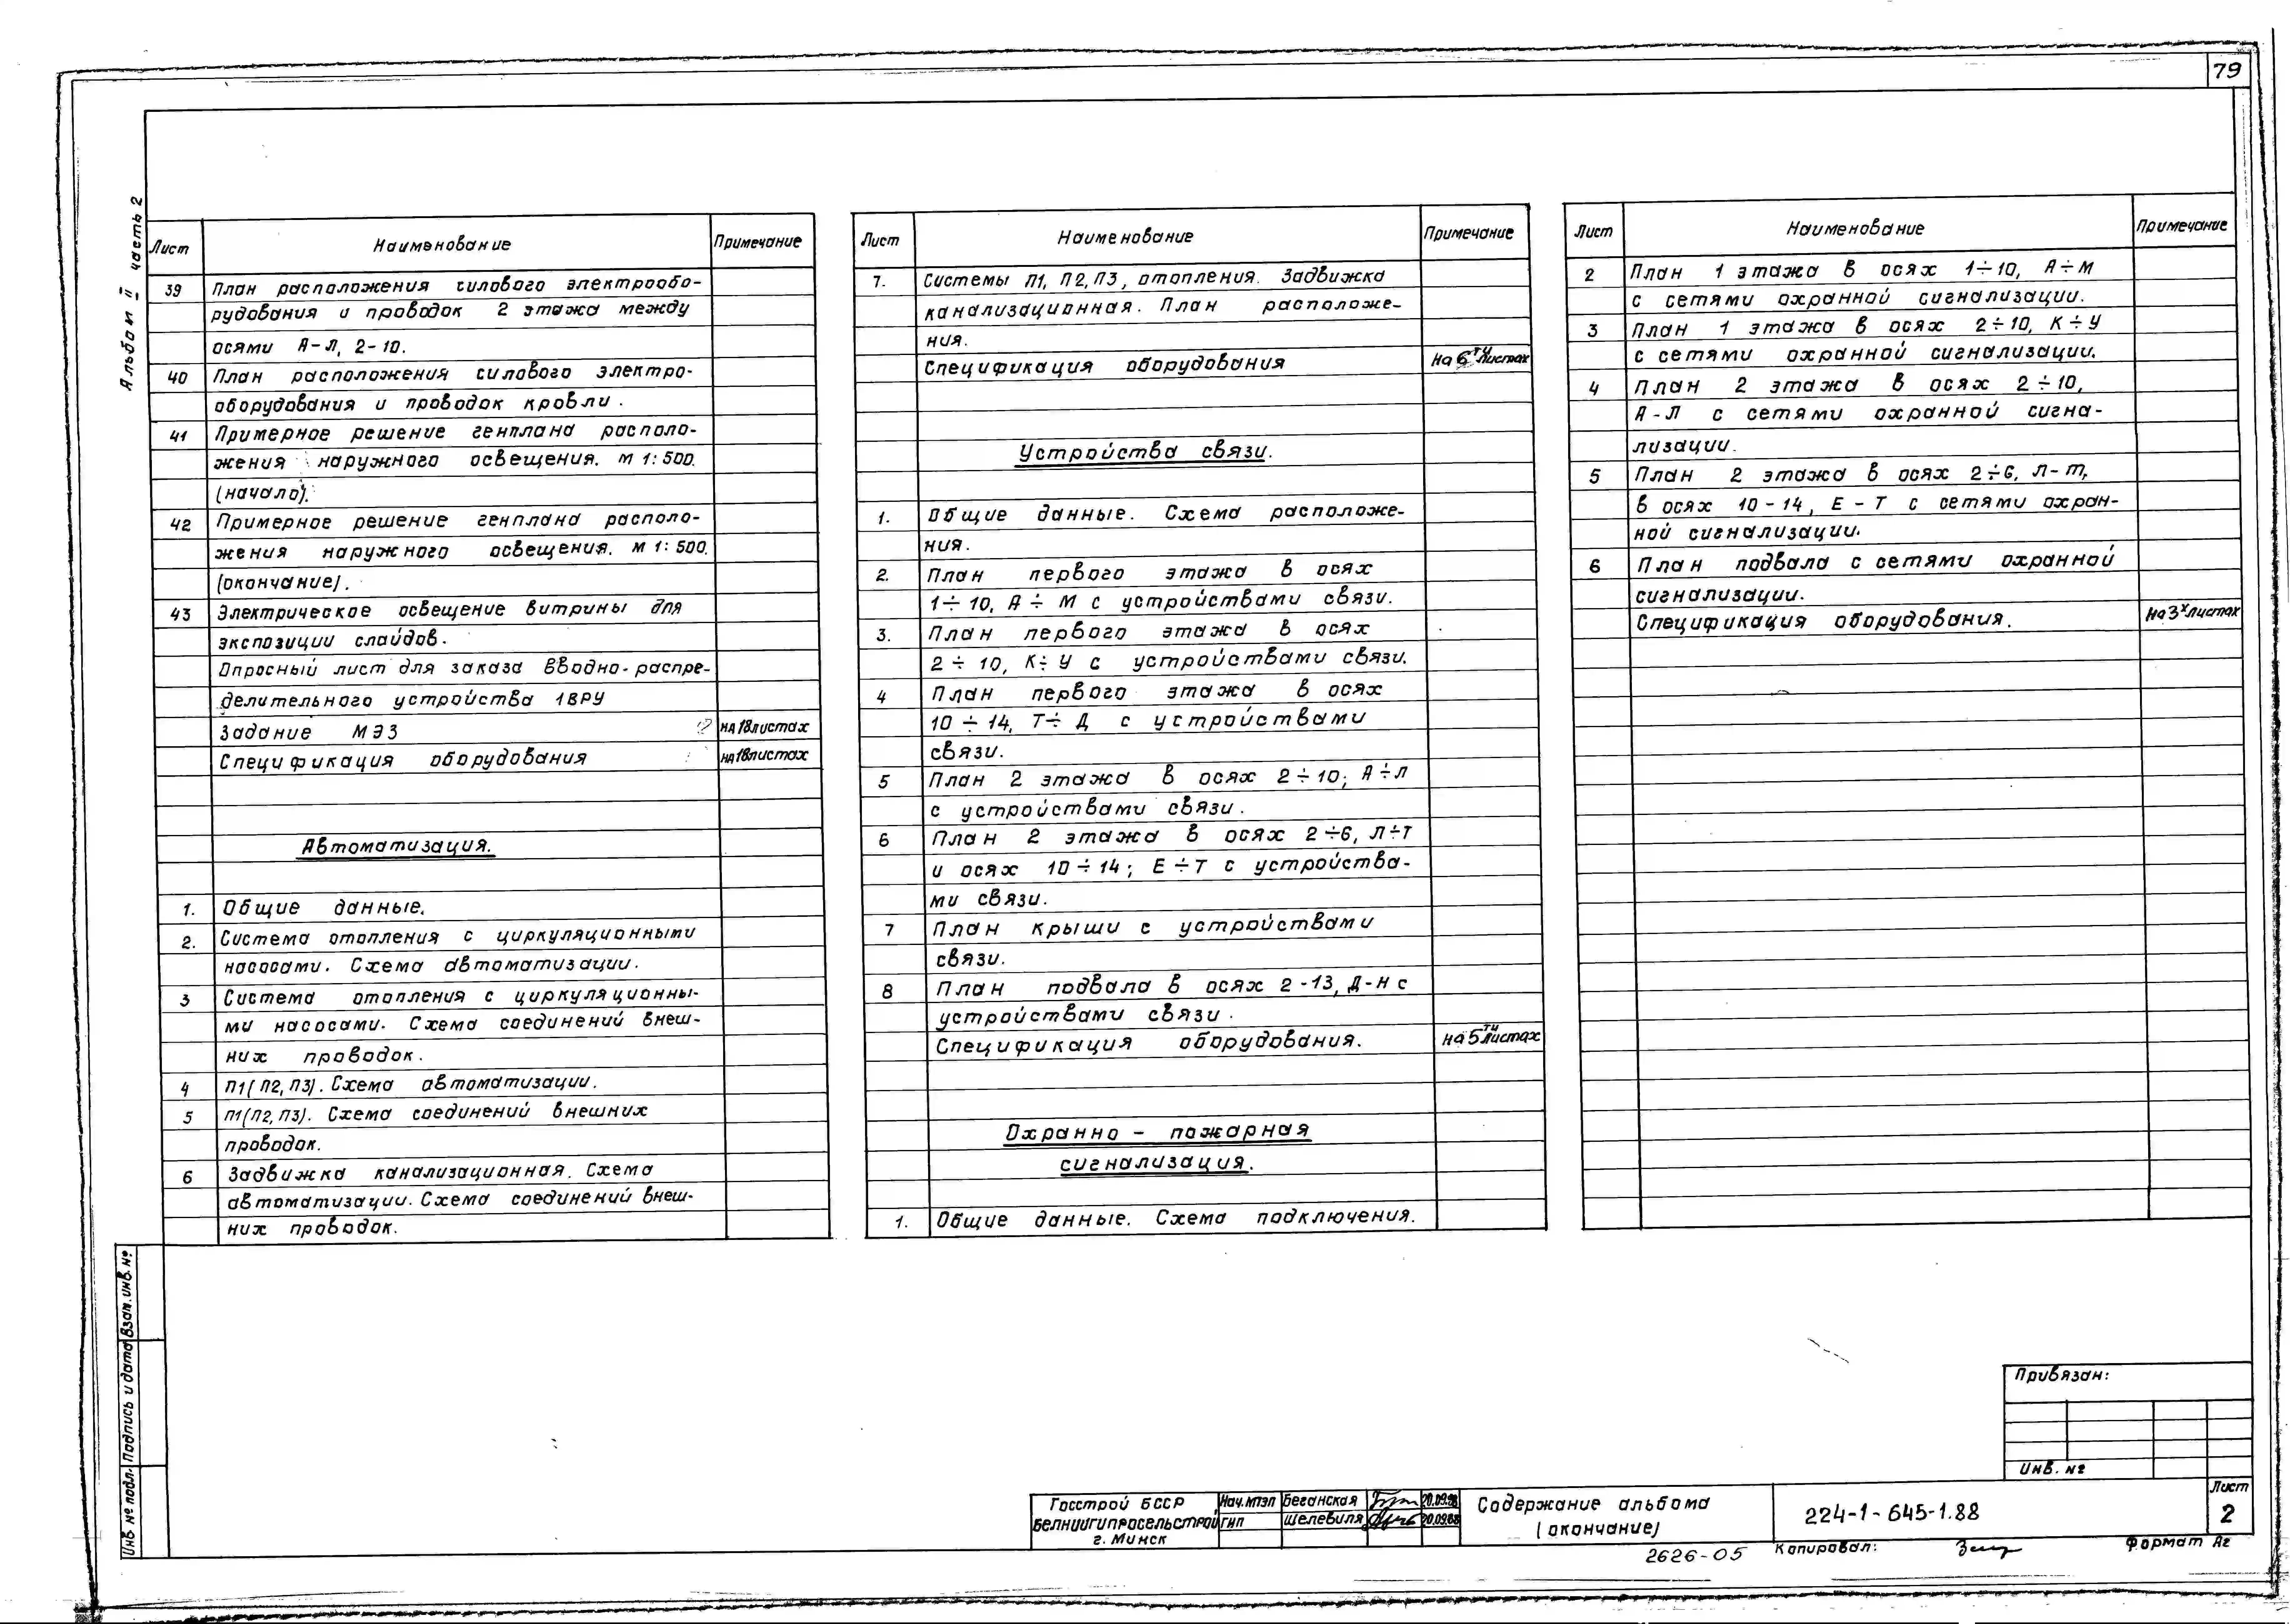 79
Альбом II часть 2
Лист Наименование Примечание
39 План расположения силового электрообо-
рудования и проводок 2 этажа между
осями А-Л, 2-10.
40 План расположения силового электро-
оборудования и проводок кровли.
41 Примерное решение генплана располо-
жения наружного освещения. М 1:500.
(начало).
42 Примерное решение генплана располо-
жения наружного освещения. М 1:500.
(окончание).
43 Электрическое освещение витрины для
экспозиции слайдов.
Опросный лист для заказа вводно-распре-
делительного устройства 1ВРУ
Задание МЭЗ на 18 листах
Спецификация оборудования на 18 листах
Автоматизация.
1. Общие данные.
2. Система отопления с циркуляционными
насосами. Схема автоматизации.
3 Система отопления с циркуляционны-
ми насосами. Схема соединений внеш-
них проводок.
4 П1(П2,П3). Схема автоматизации.
5 П1(П2,П3). Схема соединений внешних
проводок.
6 Задвижка канализационная. Схема
автоматизации. Схема соединений внеш-
них проводок.
Лист Наименование Примечание
7. Системы П1, П2, П3, отопления. Задвижка
канализационная. План расположе-
ния.
Спецификация оборудования на 6ти листах
Устройства связи.
1. Общие данные. Схема расположе-
ния.
2. План первого этажа в осях
1÷10, А÷М с устройствами связи.
3. План первого этажа в осях
2÷10, К÷У с устройствами связи.
4 План первого этажа в осях
10÷14, Т÷Д с устройствами
связи.
5 План 2 этажа в осях 2÷10; А÷Л
с устройствами связи.
6 План 2 этажа в осях 2÷6, Л÷Т
и осях 10÷14; Е÷Т с устройства-
ми связи.
7 План крыши с устройствами
связи.
8 План подвала в осях 2-13, Д-Н с
устройствами связи.
Спецификация оборудования. на 5ти листах
Охранно - пожарная
сигнализация.
1. Общие данные. Схема подключения.
Лист Наименование Примечание
2 План 1 этажа в осях 1÷10, А÷М
с сетями охранной сигнализации.
3 План 1 этажа в осях 2÷10, К÷У
с сетями охранной сигнализации.
4 План 2 этажа в осях 2÷10,
А-Л с сетями охранной сигна-
лизации.
5 План 2 этажа в осях 2÷6, Л-Т,
в осях 10-14, Е-Т с сетями охран-
ной сигнализации.
6 План подвала с сетями охранной
сигнализации.
Спецификация оборудования. на 3х листах
Взам. инв. №
Подпись и дата
Инв № подл.
Привязан:
Инв. №
Госстрой БССР
БЕЛНИИГИПРОСЕЛЬСТРОЙ
г. Минск
Нач. МТЭП Беганская 20.09.88
ГИП Шелевиля 20.09.88
Содержание альбома
(окончание)
224-1-645-1.88
Лист
2
2626-05 Копировал: Формат А2